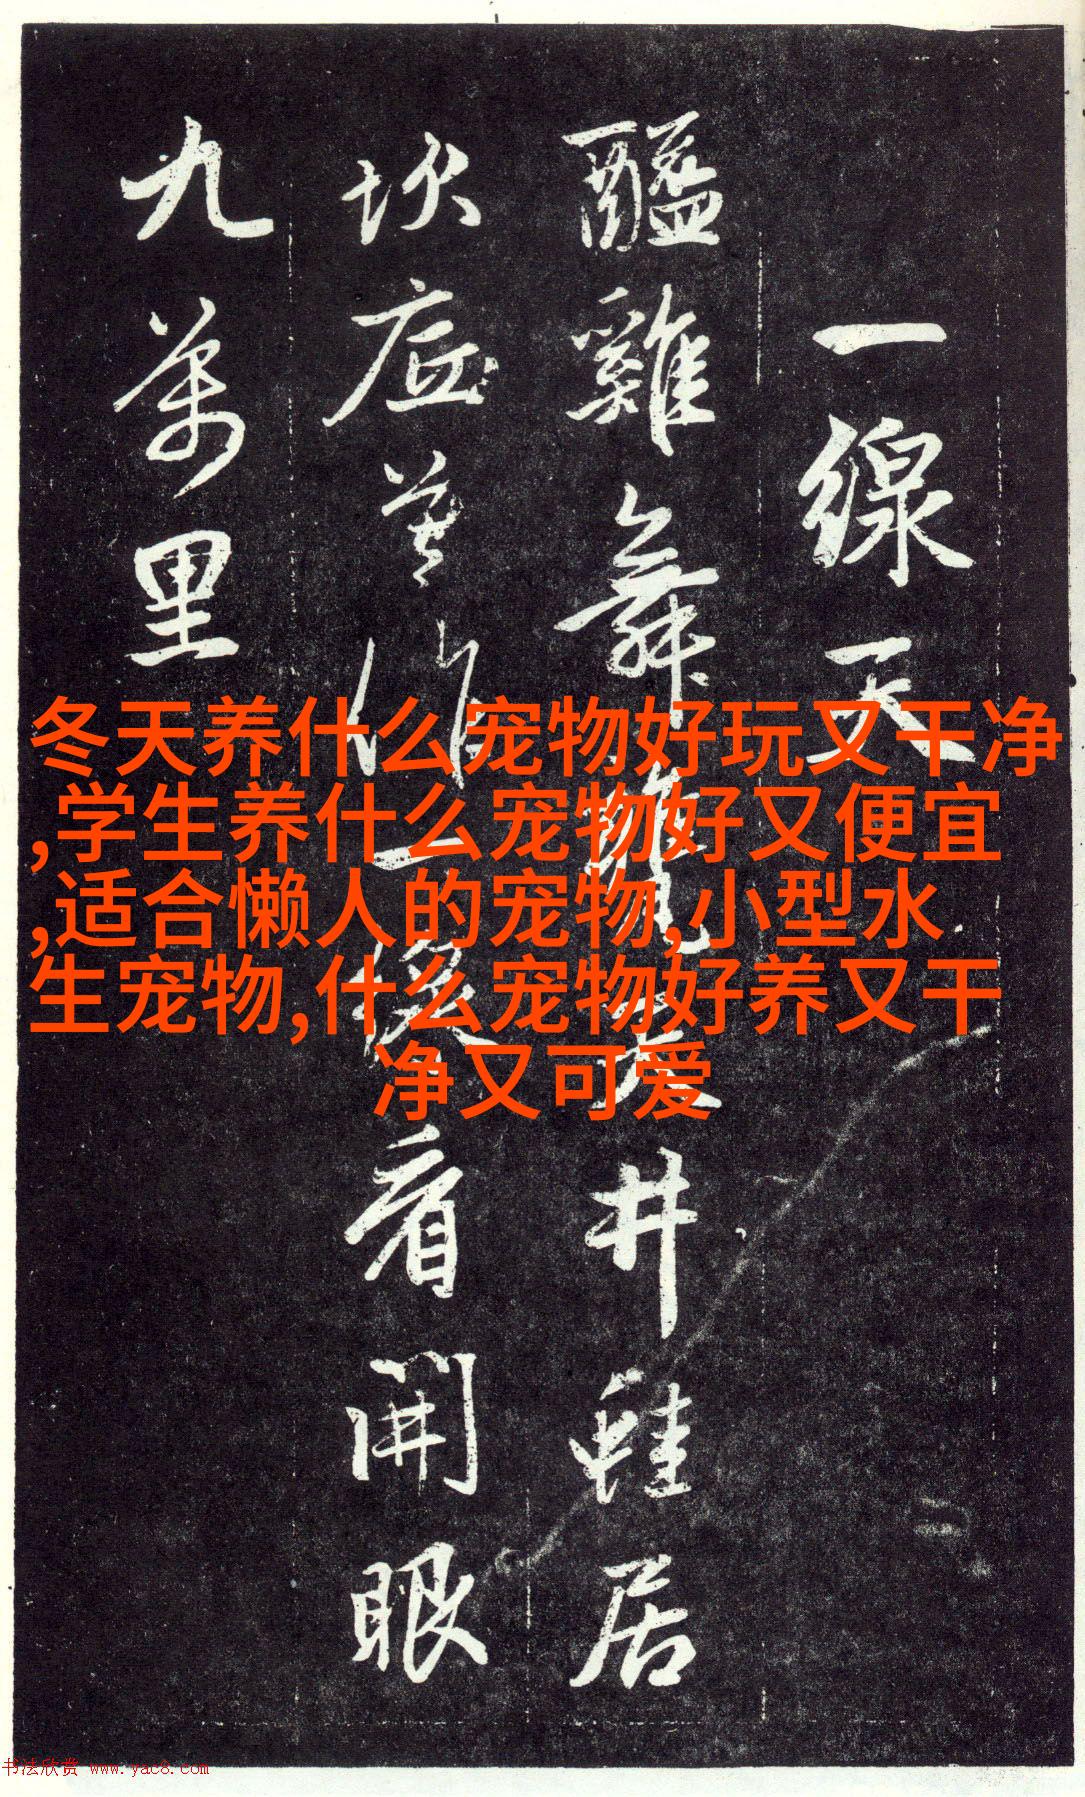 一線天
醯雞舞甕天井蛙居
坎底莫作一樣看開眼
九萬里
冬天养什么宠物好玩又干净
,学生养什么宠物好又便宜
,适合懒人的宠物,小型水
生宠物,什么宠物好养又干
净又可爱
书法欣赏 www.yac8.com